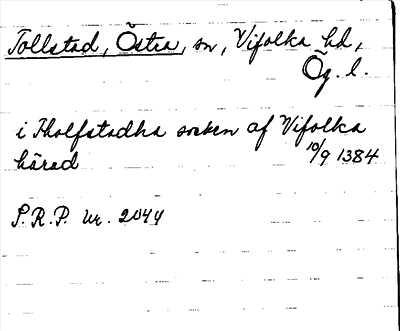 Tollstad, Östra, sn, Vifolka hd,
Ög. l.
i Tholfstadha soken af Vifolka
härad 10/9 1384
S.R.P. nr. 2044